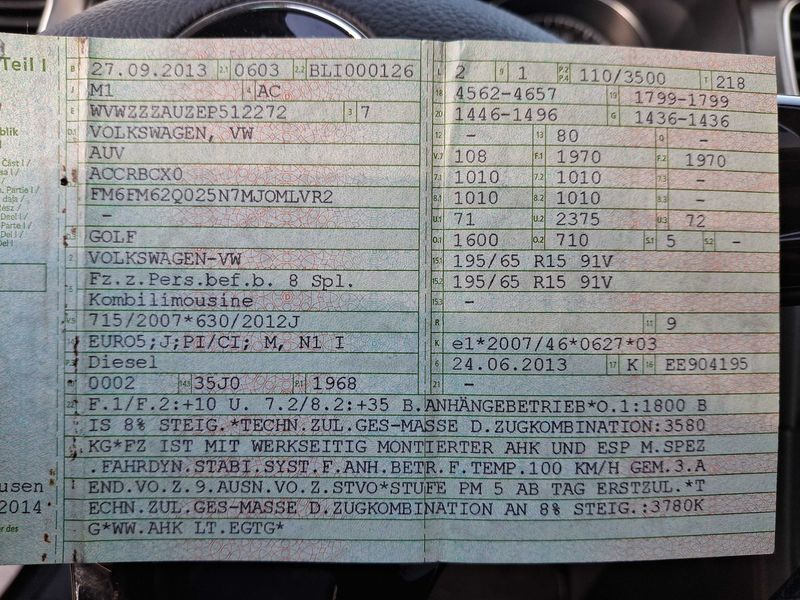 Teil I
B 27.09.2013 2.1 0603 2.2 BLI000126
J M1 4 AC
E WVWZZZAUZEP512272 3 7
D.1 VOLKSWAGEN, VW
AUV
ACCRBCX0
FM6FM62Q025N7MJOMLVR2
–
D.3 GOLF
2 VOLKSWAGEN-VW
5 Fz.z.Pers.bef.b. 8 Spl.
Kombilimousine
V.9 715/2007*630/2012J
14 EURO5;J;PI/CI; M, N1 I
P.3 Diesel
10 0002 14.1 35J0 P.1 1968
L 2 9 1 P.2 P.4 110/3500 T 218
18 4562-4657 19 1799-1799
20 1446-1496 G 1436-1436
12 – 13 80 Q –
V.7 108 F.1 1970 F.2 1970
7.1 1010 7.2 1010 7.3 –
8.1 1010 8.2 1010 8.3 –
U.1 71 U.2 2375 U.3 72
O.1 1600 O.2 710 S.1 5 S.2 –
15.1 195/65 R15 91V
15.2 195/65 R15 91V
15.3 –
R 11 9
K e1*2007/46*0627*03
6 24.06.2013 17 K 16 EE904195
21 –
22 F.1/F.2:+10 U. 7.2/8.2:+35 B.ANHÄNGEBETRIEB*O.1:1800 B
IS 8% STEIG.*TECHN.ZUL.GES-MASSE D.ZUGKOMBINATION:3580
KG*FZ IST MIT WERKSEITIG MONTIERTER AHK UND ESP M.SPEZ
.FAHRDYN.STABI.SYST.F.ANH.BETR.F.TEMP.100 KM/H GEM.3.A
END.VO.Z.9.AUSN.VO.Z.STVO*STUFE PM 5 AB TAG ERSTZUL.*T
ECHN.ZUL.GES-MASSE D.ZUGKOMBINATION AN 8% STEIG.:3780K
G*WW.AHK LT.EGTG*
usen
2014